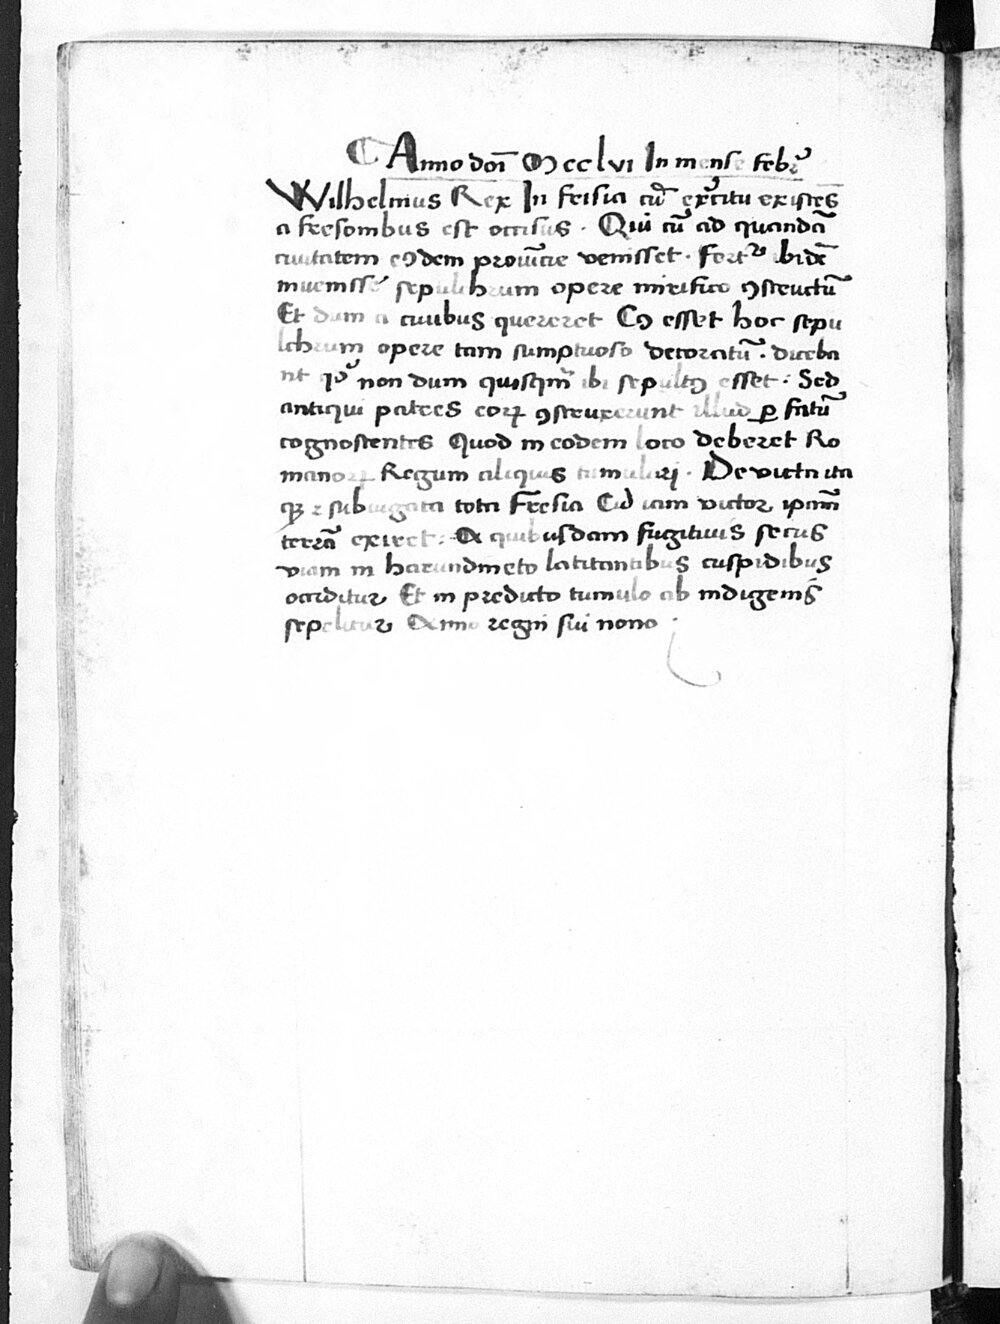 Anno dōi Mcclvi In mense febꝛ̉
Wilhelmus Rex In frisia cū exercitu existēs
a fresombus est occisus . Qui cū ad quandā
ciuitatem eꝯdem prouīcie venisset . fortͤ ibidē
inuenisse sepulchrum opere mirifico ꝯstructū
Et dum a ciuibus quereret Cꝯ esset hoc sepu
lchrum opere tam sumptuoso decoratū . diceba
nt qͦ non dum quisqm̄ ibi sepultꝯ esset . Sed
antiqui patres eoꝝ ꝯstruxerunt illud ꝑ fatū
cognoscentes Quod in eodem loco deberet Ro
manoꝝ Regum aliquis tumulari . Devicta ita
qꝫ ⁊ subiugata tota Fresia Cū iam victor ipam̄
terrā exiret : A quibusdam fugitiuis secus
viam in harundineto latitantibus cuspidibus
occiditur Et in predicto tumulo ab indigenis
sepelitur Anno regni sui nono .